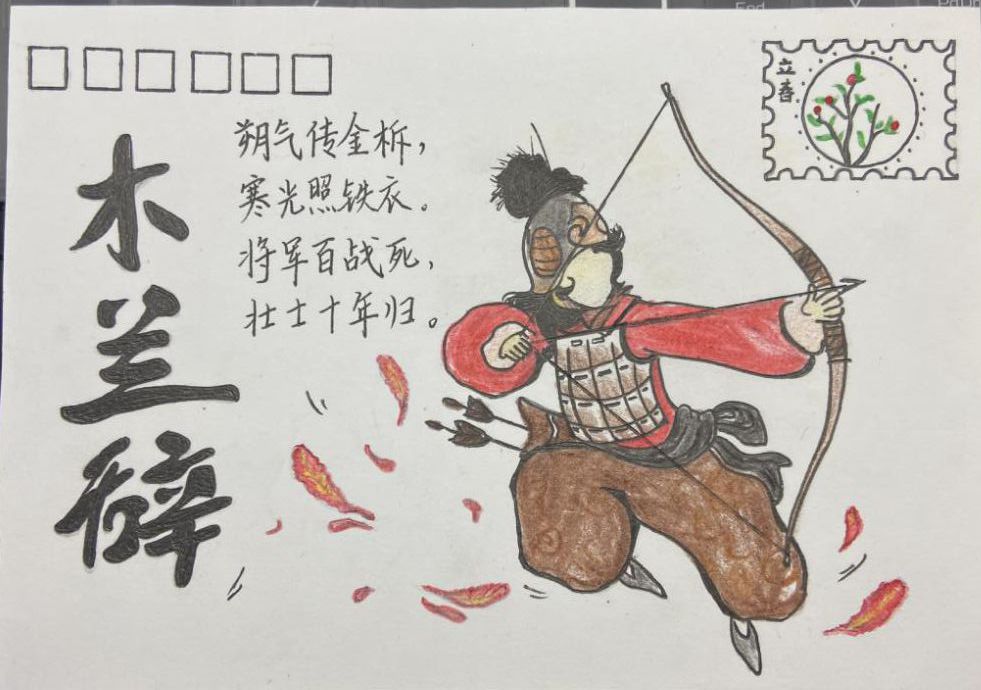 木兰辞
朔气传金柝，
寒光照铁衣。
将军百战死，
壮士十年归。
立春